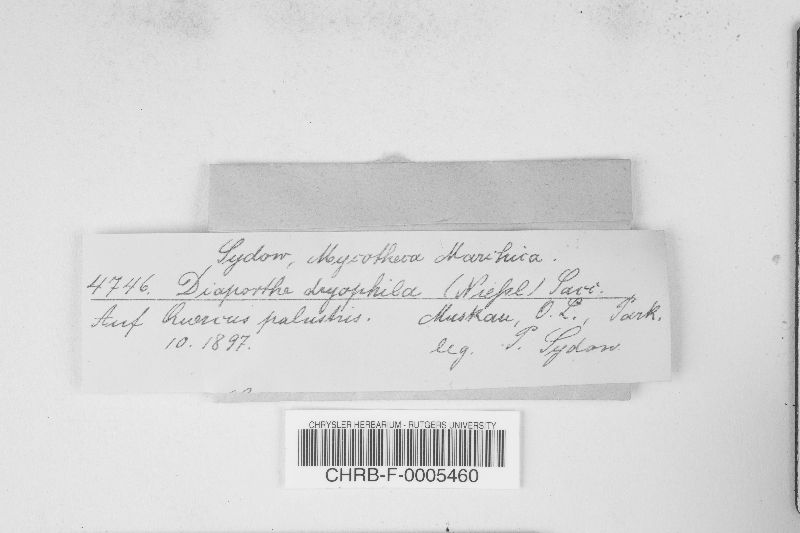 Sydow, Mycotheca Marchica.
4746. Diaporthe dryophila (Niessl) Sacc.
Auf Quercus palustris. Muskau, O. L., Park.
10. 1897. leg. P. Sydow
CHRYSLER HERBARIUM - RUTGERS UNIVERSITY
CHRB-F-0005460